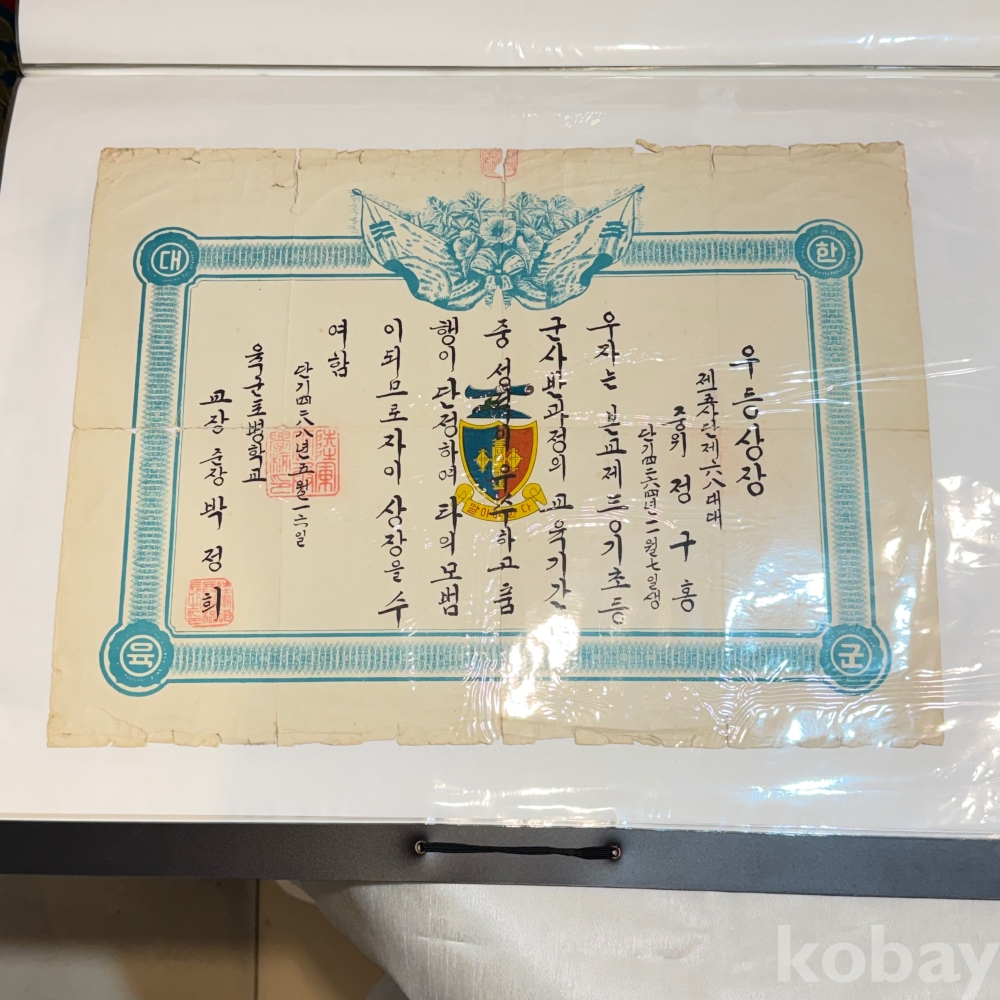 대한육군
우등상장
제五사단제六八대대
중위 정구홍
단기四二六四년二월七일생
우자는 본교제 기초등
군사반과정의 교육기간
중 성적이 우수하고 품
행이 단정하여 타의모범
이되므로자이 상장을 수
여함
단기四二八八년五월二六일
육군포병학교
교장 준장 박정희
kobay